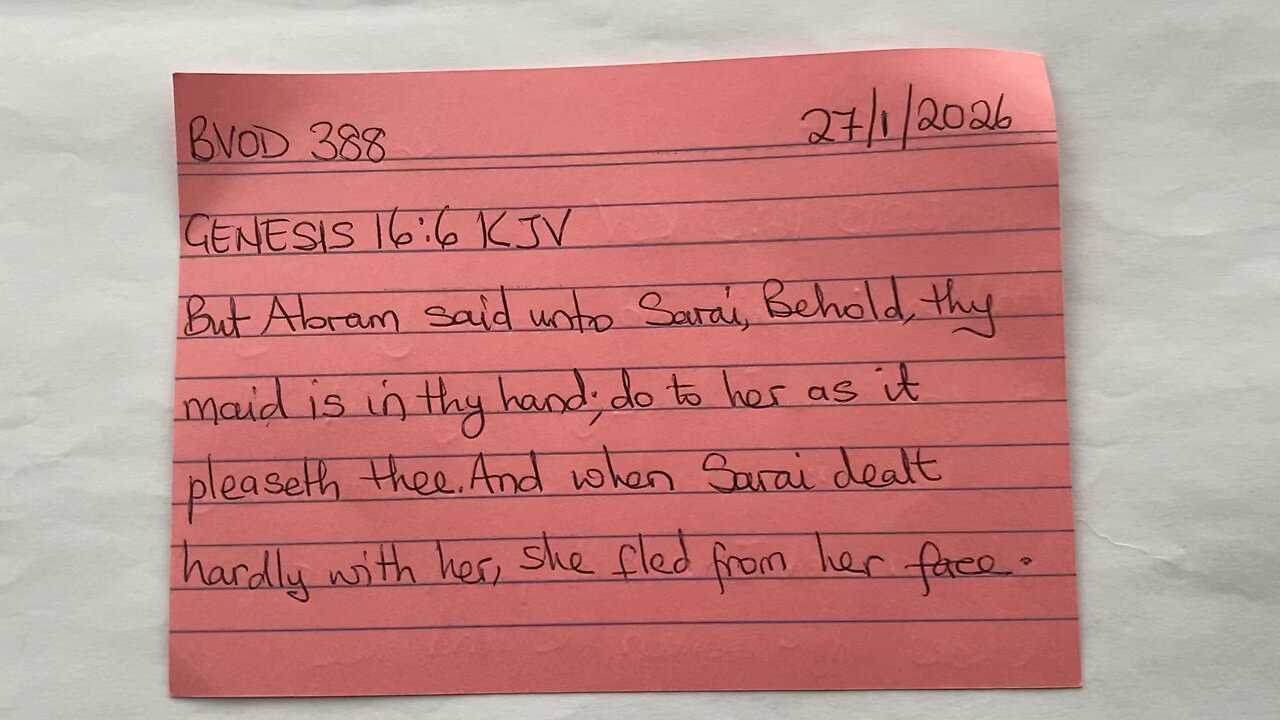 BVOD 388 27/1/2026
GENESIS 16:6 KJV
But Abram said unto Sarai, Behold, thy
maid is in thy hand; do to her as it
pleaseth thee. And when Sarai dealt
hardly with her, she fled from her face.